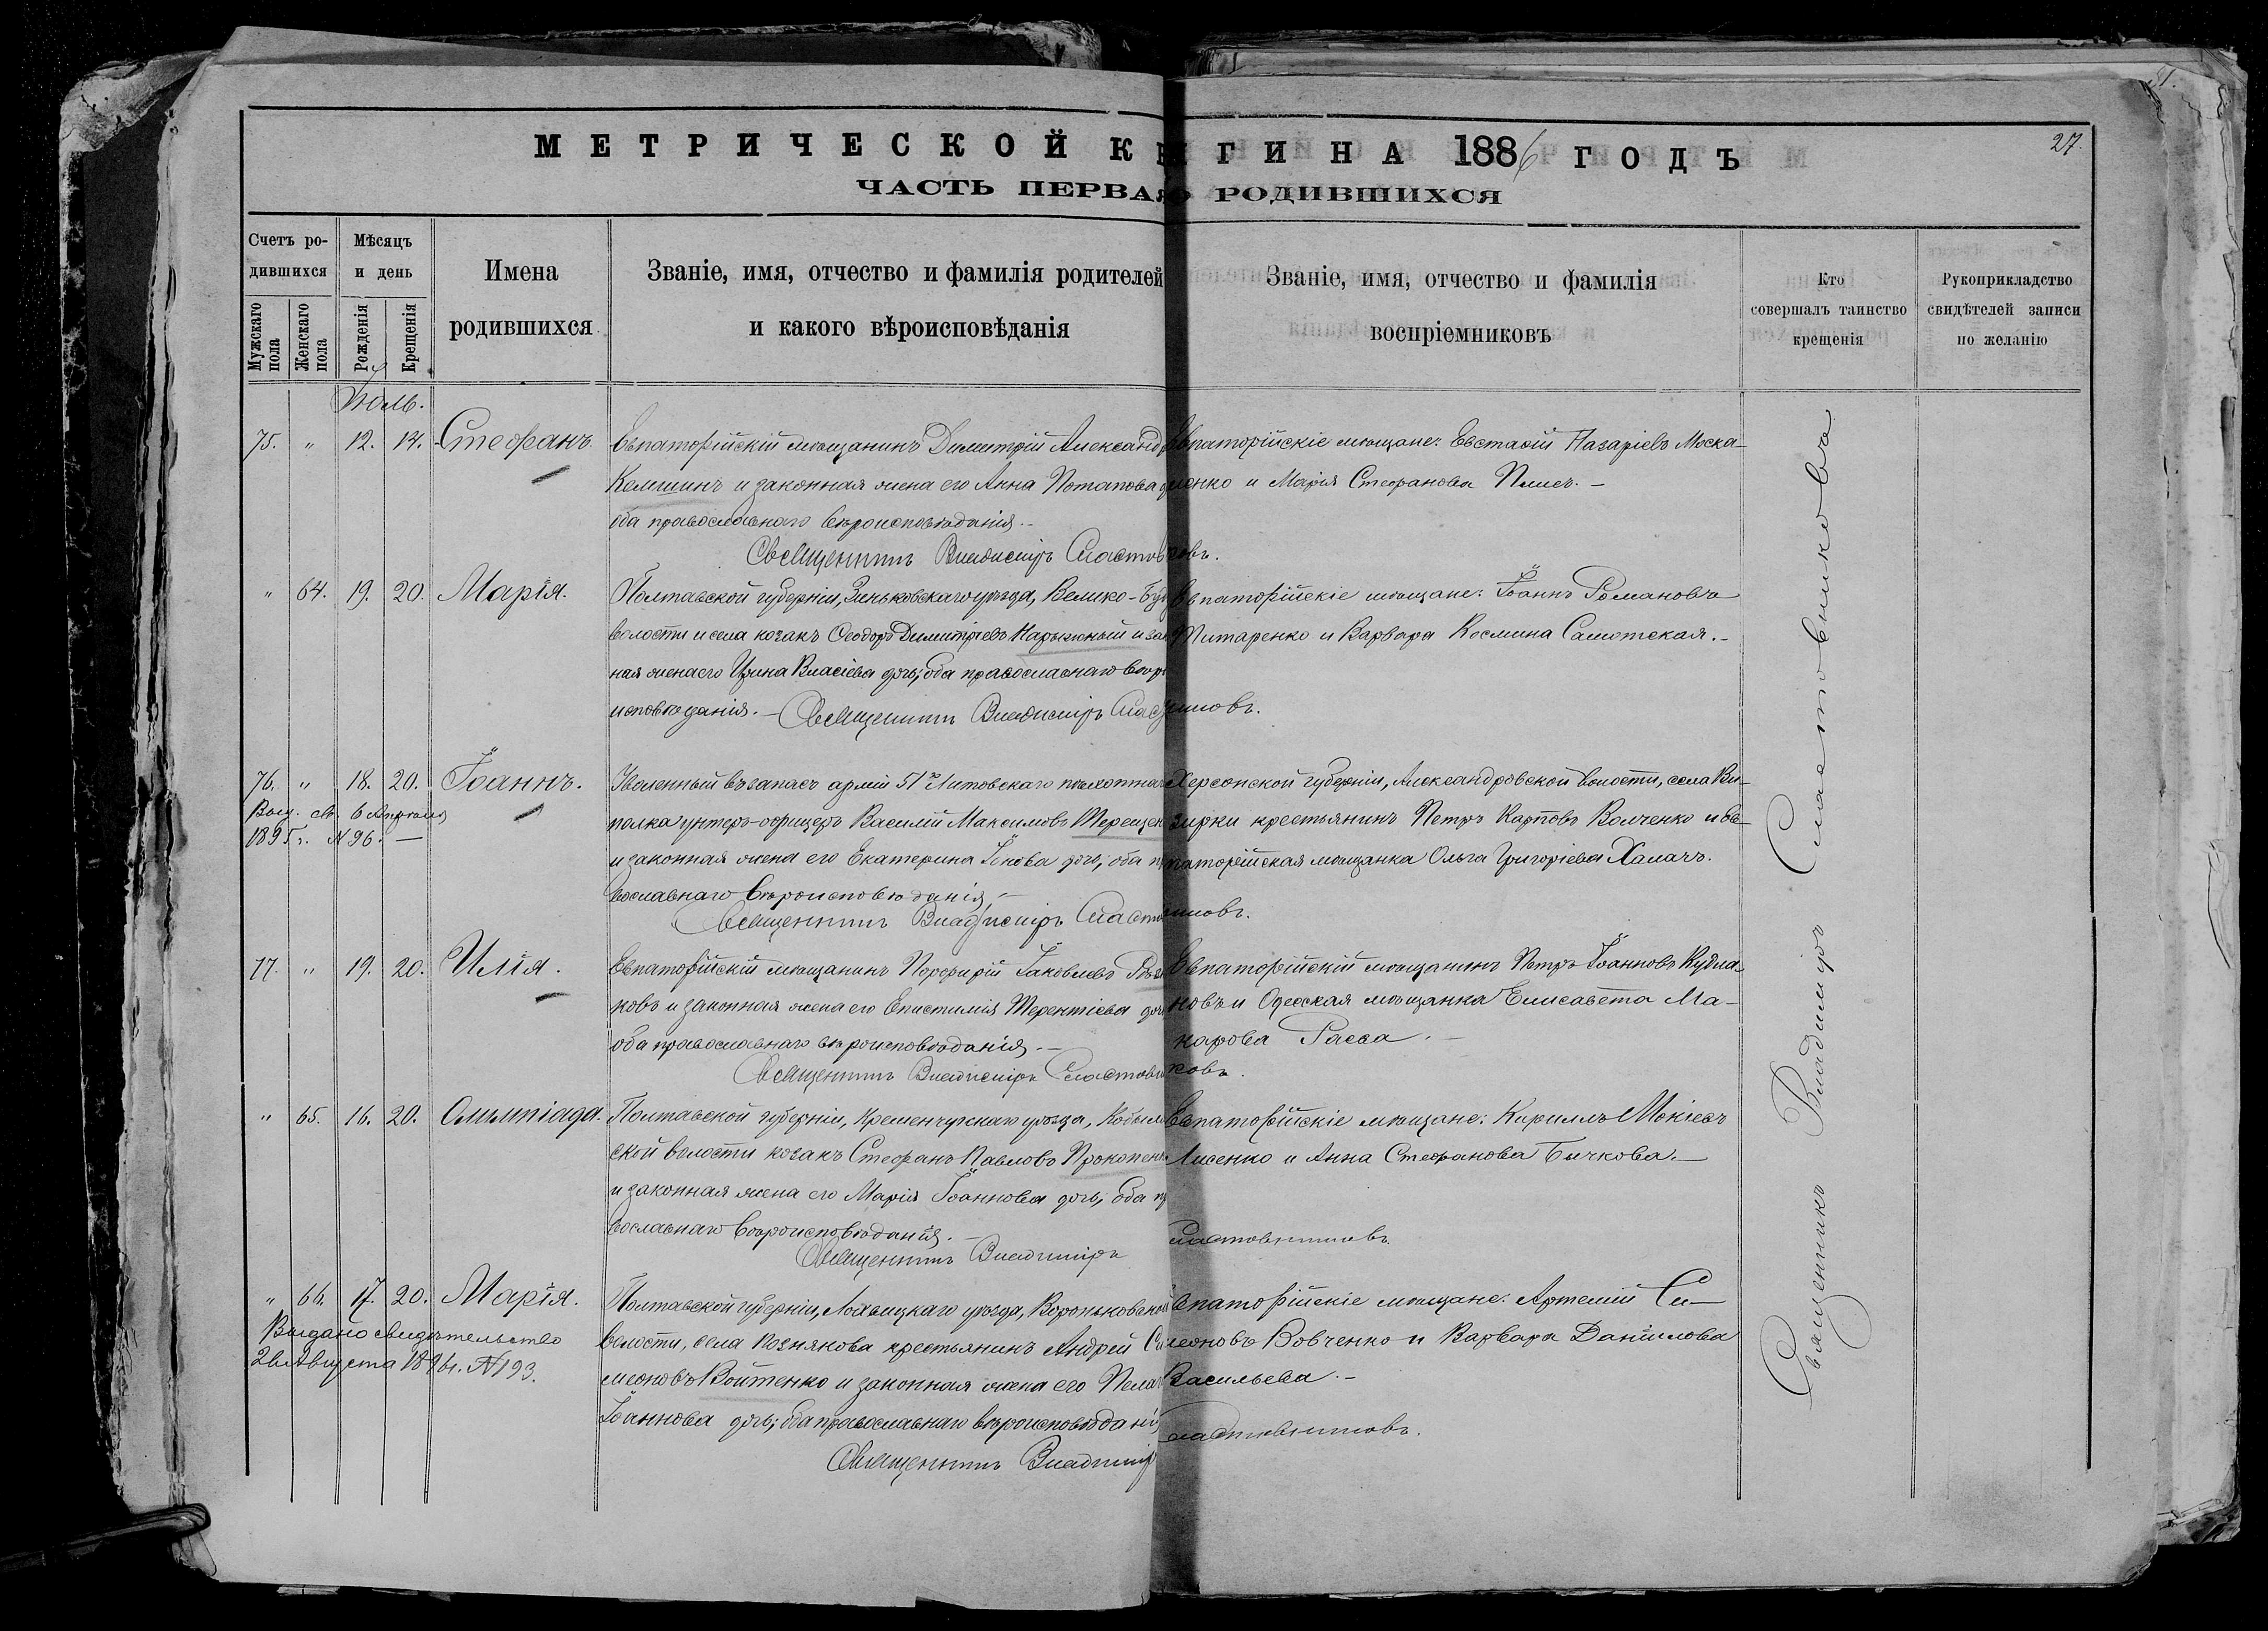 27.
МЕТРИЧЕСКОЙ КНИГИ НА 1886 ГОДЪ
ЧАСТЬ ПЕРВАЯ О РОДИВШИХСЯ
Счетъ родившихся
Мужскаго пола
Женскаго пола
Мѣсяцъ и день
Рожденія
Крещенія
Имена родившихся
Званіе, имя, отчество и фамилія родителей
и какого вѣроисповѣданія
Званіе, имя, отчество и фамилія
воспріемниковъ
Кто
совершалъ таинство
крещенія
Рукоприкладство
свидѣтелей записи
по желанію
Іюль.
75. " 12. 14. Стефанъ.
Евпаторійскій мѣщанинъ Димитрій Александр
и законная жена его Анна Потапова
оба православнаго вѣроисповѣданія.
Священникъ Владиміръ Сластовниковъ.
Евпаторійскіе мѣщане: Евстафій Назаріевъ Моска-
ленко и Марія Стефанова
" 64. 19. 20. Марія.
Полтавской губерніи, Зиньковскаго уѣзда, Велико-Буд
волости и села козакъ Ѳеодоръ Димитріевъ и за
ная жена его Ирина Власіева дочь; оба православнаго вѣр
исповѣданія. Священникъ Владиміръ Сластовниковъ.
Евпаторійскіе мѣщане: Іоаннъ Романовъ
Титаренко и Варвара Космина
76. " 18. 20. Іоаннъ.
Выд. св. 6 Апрѣля
1895 г. N 96.
Уволенный въ запасъ арміи 51го Литовскаго пѣхотнаго
полка унтеръ-офицеръ Василій Максимовъ Терещен
и законная жена его Екатерина дочь; оба пр
вославнаго вѣроисповѣданія.
Священникъ Владиміръ Сластовниковъ.
Херсонской губерніи, Александровской волости, села Ви-
зирки крестьянинъ Петръ Карповъ Волченко и Ев-
паторійская мѣщанка Ольга Григоріева Халачъ.
77. " 19. 20. Илія.
Евпаторійскій мѣщанинъ Порфирій Іаковлевъ
ковъ и законная жена его Епистимія Терентіева дочь
оба православнаго вѣроисповѣданія.
Священникъ Владиміръ Сластовниковъ.
Евпаторійскій мѣщанинъ Петръ Іоанновъ Кудла-
новъ и Одесская мѣщанка Елисавета Ма-
карова Расса.
" 65. 16. 20. Олимпіада.
Полтавской губерніи, Кременчугскаго уѣзда,
ской волости козакъ Стефанъ Павловъ Прокопен
и законная жена его Марія Іоаннова дочь; оба пр
вославнаго вѣроисповѣданія.
Священникъ Владиміръ Сластовниковъ.
Евпаторійскіе мѣщане: Кириллъ Мокіевъ
Лисенко и Анна Стефанова Бычкова.
" 66. 17. 20. Марія.
Выдано свидѣтельство
Августа N 193.
Полтавской губерніи, Лохвицкаго уѣзда, Вороньковской
волости, села Позняковa крестьянинъ Андрей Си
меоновъ Войтенко и законная жена его Пелаг
Іоаннова дочь; оба православнаго вѣроисповѣданія
Священникъ Владиміръ Сластовниковъ.
Евпаторійскіе мѣщане: Артемій Си-
меоновъ Вовченко и Варвара Даніилова
Васильева.
Священникъ Владиміръ Сластовниковъ